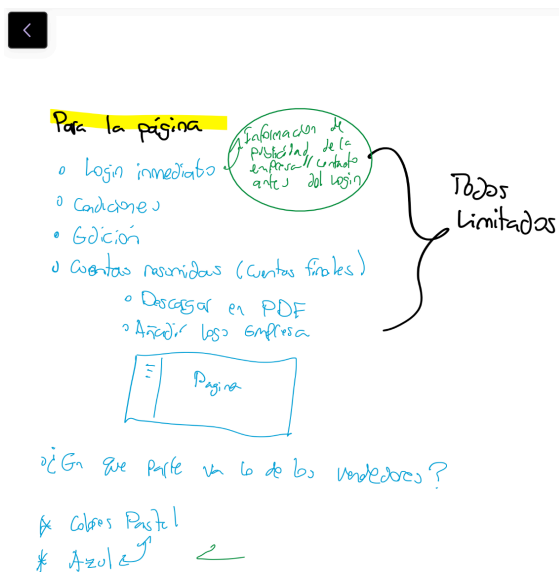 Para la página
Información de
publicidad de la
empresa // contacto
antes del login
• Login inmediato
• Condiciones
• Edición
• Cuentas resumidas (cuentas finales)
• Descargar en PDF
• Añadir logo empresa
Todos
Limitados
Pagina
• ¿En que parte va lo de los vendedores?
* Colores Pastel
* Azul